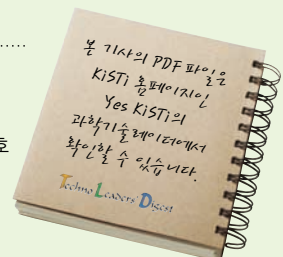 본 기사의 PDF 파일은
KiSTi 홈페이지인
Yes KiSTi의
과학기술레이더에서
확인할 수 있습니다.
Techno Leaders' Digest
호